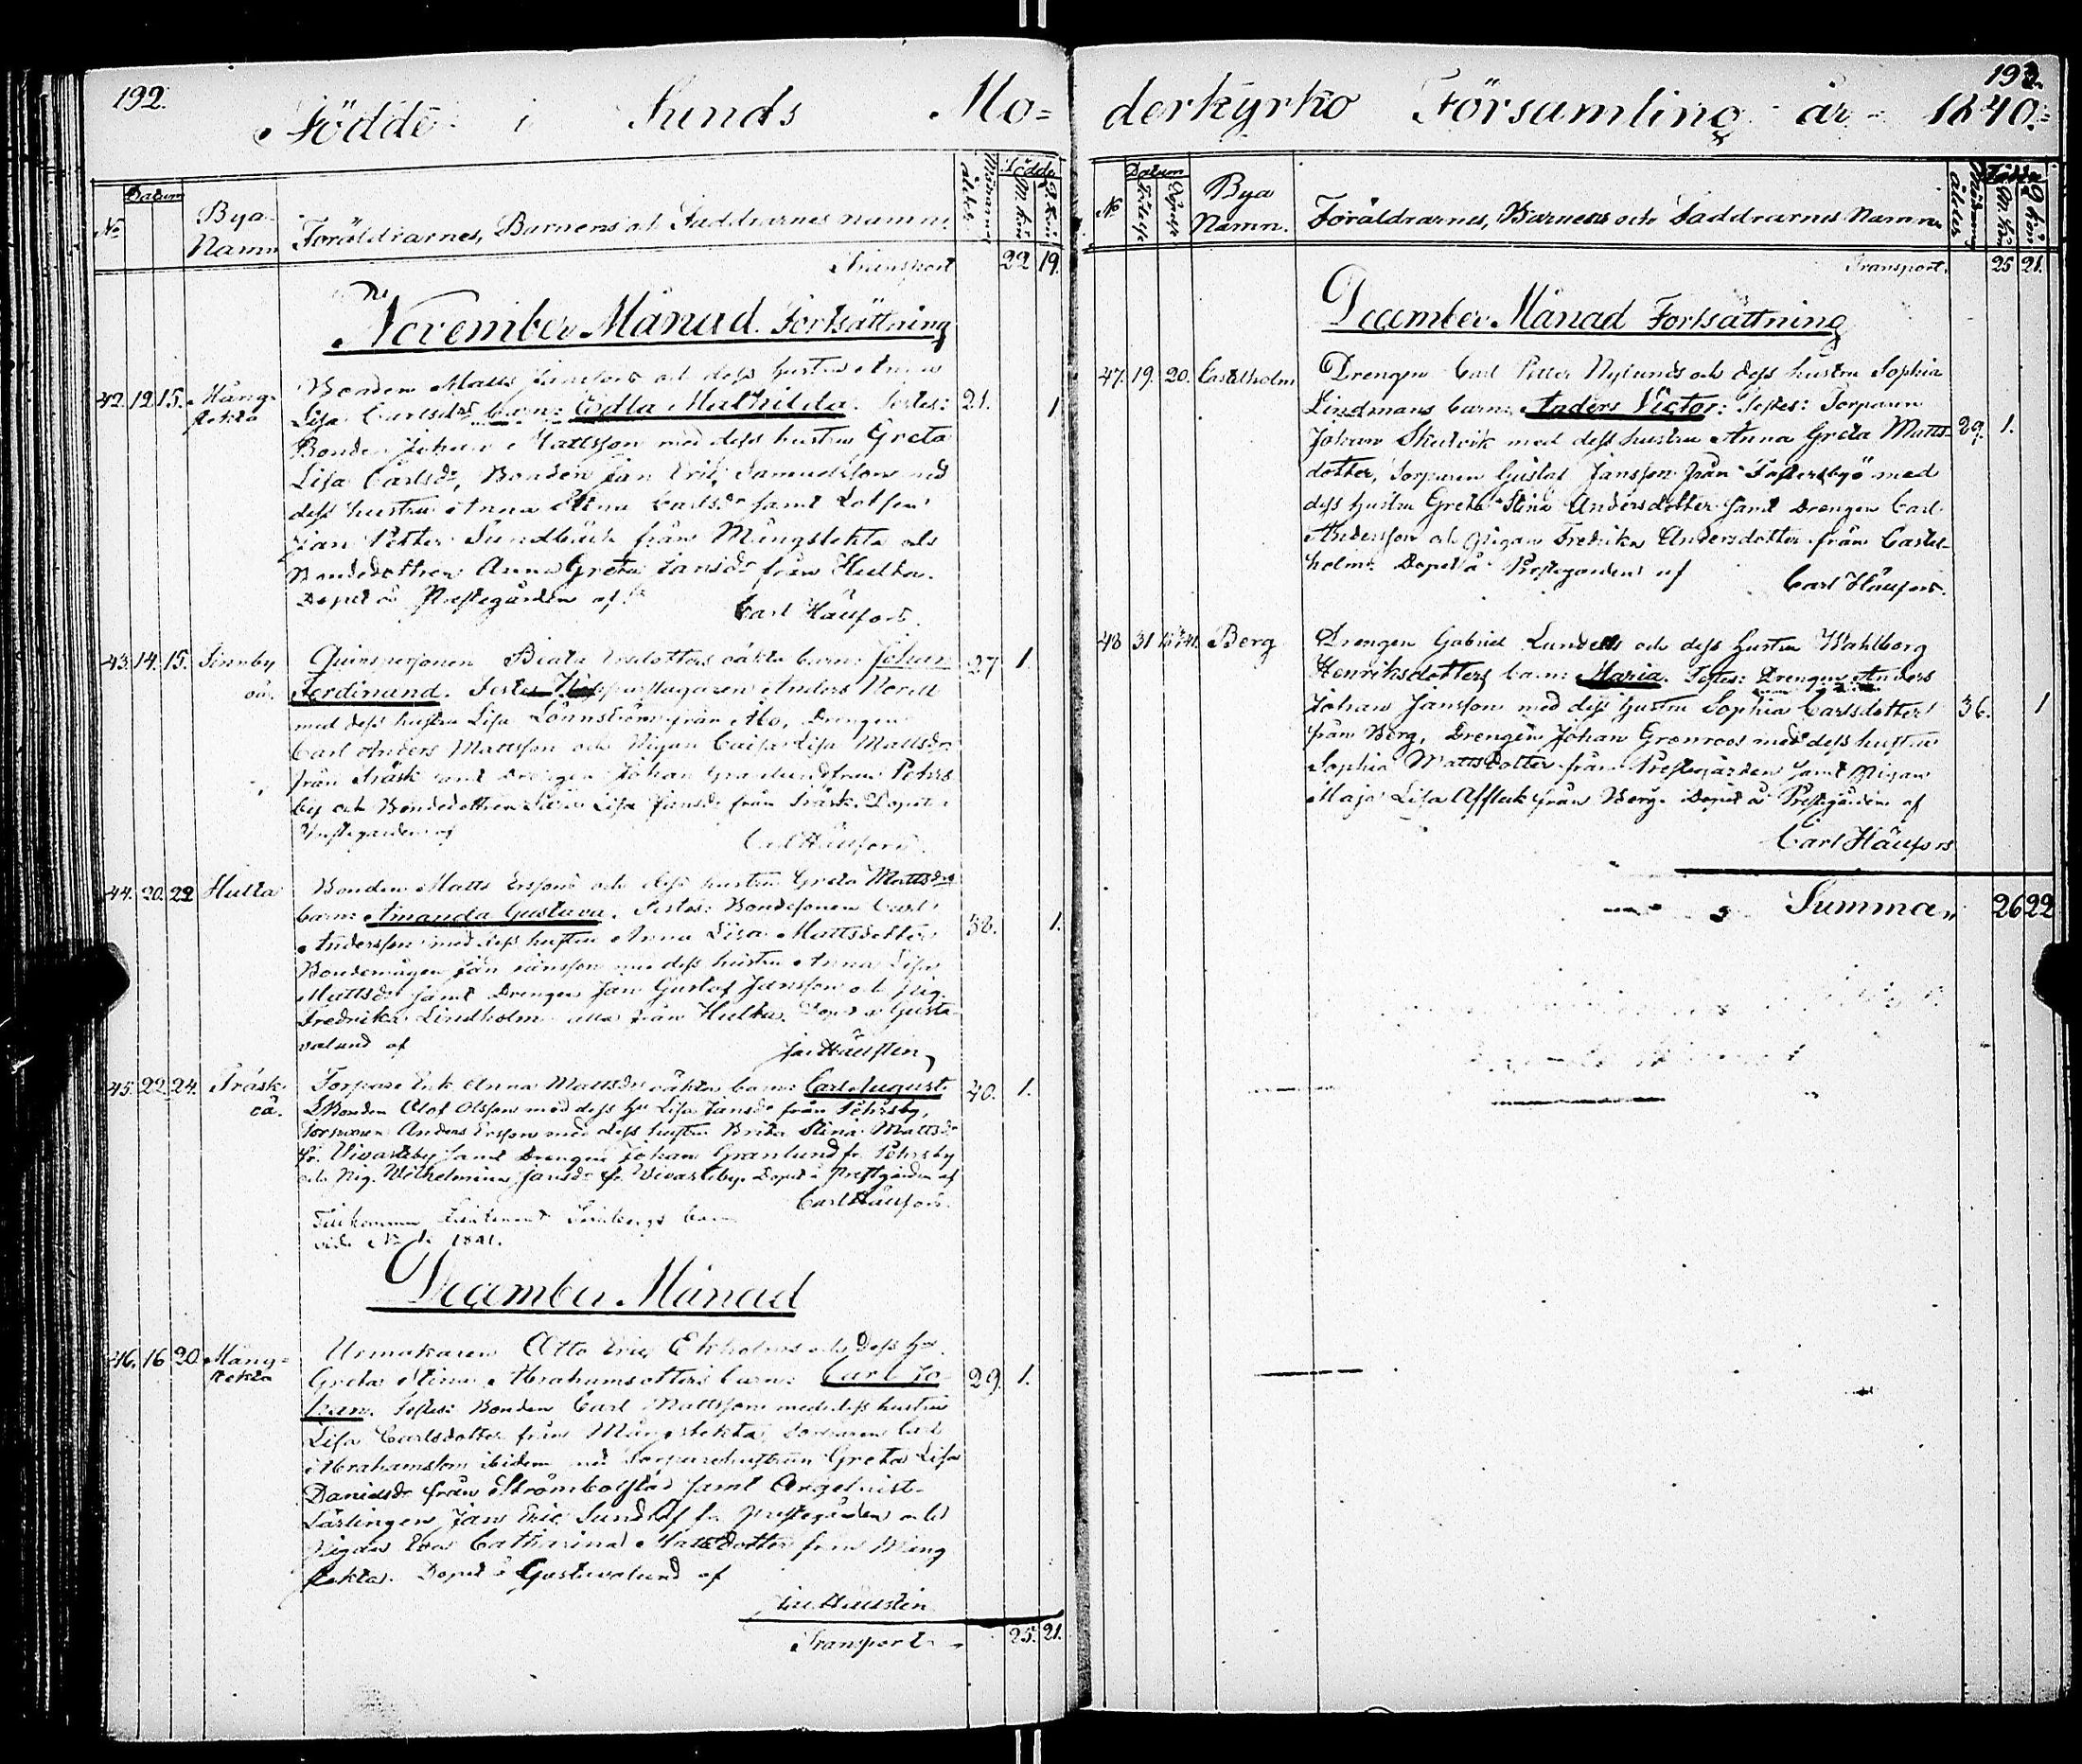 192.
Födde i Sunds Mo=
Datum
Födde
No
Bya
Namn
Föräldrarnes, Barnens och Faddrarnes namn.
Moderens ålder.
M. kön
Q. kön
Transport 22 19.
November Månad. Fortsättning
42. 12 15. Mång-
stekta
Bonden Matts Janssons och dess hustru Anna
Lisa Carlsdrs barn: Edla Mathilda. Testes: 21. 1
Bonden Johan Mattsson med dess hustru Greta
Lisa Carlsdr, Bonden Jan Erik Samuelsson med
dess hustru Anna Stina Carlsdr samt Lotsen
Jan Petter Sundbäck från Mångstekta och
Bondedottren Anna Greta Jansdr från Hulta.
Döpt å Prestegården af
Carl Häufors.
43. 14. 15. Finnby
oä.
Quinspersonen Beata Ersdotters oäkta barn: Johan 37 1.
Ferdinand. Testes: Kopparslagaren Anders Noréll
med dess hustru Lisa Lönnström från Åbo, Drengen
Carl Anders Mattsson och Pigan Caisa Lisa Mattsdr
från Träsk samt Drengen Johan Granlund från Pehrs
by och Bondedottren Lisa Jansdr från Träsk. Döpt å
Prestegården af
Carl Häufors.
44. 20. 22 Hulta
Bonden Matts Erssons och dess hustru Greta Mattsdrs
barn: Amanda Gustava. Testes: Bondesonen Carl 38. 1.
Andersson med dess hustru Anna Lisa Mattsdotter
Bondemågen Jan Jansson med dess hustru Anna Lisa
Mattsdr samt Drengen Jan Gustaf Jansson och Pig.
Fredrika Lindholm alla från Hulta. Döpt å Gusta
valund af
45. 22. 24. Träsk.
oä.
Torpare Enk. Anna Mattsdrs oäkta barn: Carl August 40. 1.
Bonden Olof Olsson med dess hu Lisa Jansdr från Pehrsby,
Torparen Anders Ersson med dess hustru Brita Stina Mattsdr
fr. Vivasteby samt Drengen Johan Granlund fr. Pehrsby
och Pig. Wilhelmina Jansdr fr Vivasteby. Döpt å Prestgården af
Carl Häufors.
Tillkommer Lieutenant barn
vide No 1841.
December Månad
46. 16 20. Mång-
stekta
Urmakaren Otto Eric Ekholms och dess hu
Greta Stina Abrahamsdotters barn: Carl Jo 29. 1.
han. Testes: Bonden Carl Mattsson med dess hustru
Lisa Carlsdotter från Mångstekta, Torparen Carl
Abrahamsson ibidem med Torparehustrun Greta Lisa
Danielsdr från Strömbolstad samt Orgelnist-
Lärlingen Jan Eric Sundlöf fr. Prestegården och
Pigan Eva Catharina Mattsdotter från Mång
stekta. Döpt å Gustavalund af
Transport 25. 21.
193.
derkyrko Församling år 1840.
Datum
Födde
No
Födelse
Döpelse
Bya
Namn.
Föräldrarnes, Barnens och Faddrarnes Namn.
Moderens
ålder.
M. kön
Q kön
Transport. 25 21.
December Månad Fortsättning
47. 19. 20. Castelholm
Drengen Carl Petter Nylunds och dess hustru Sophia
Lindmans barn: Anders Victor: Testes: Torparen
Johan Skutvik med dess hustru Anna Greta Matts- 29. 1.
dotter, Torparen Gustaf Jansson från Tosterbyö med
dess hustru Greta Stina Andersdotter samt Drengen Carl
Andersson och Pigan Fredrika Andersdotter från Castel-
holm. Döpt å Prestegården af
Carl Häufors.
48 31 Berg
Drengen Gabriel Lundells och dess hustru Wahlborg
Henriksdotters barn: Maria. Testes: Drengen Anders
Johan Jansson med dess hustru Sophia Carlsdotter 36. 1
från Berg, Drengen Johan Grönroos med dess hustru
Sophia Mattsdotter från Prestegården samt Pigan
Maja Lisa Affleck från Berg. Döpt å Prestgården af
Carl Häufors
Summa, 26 22